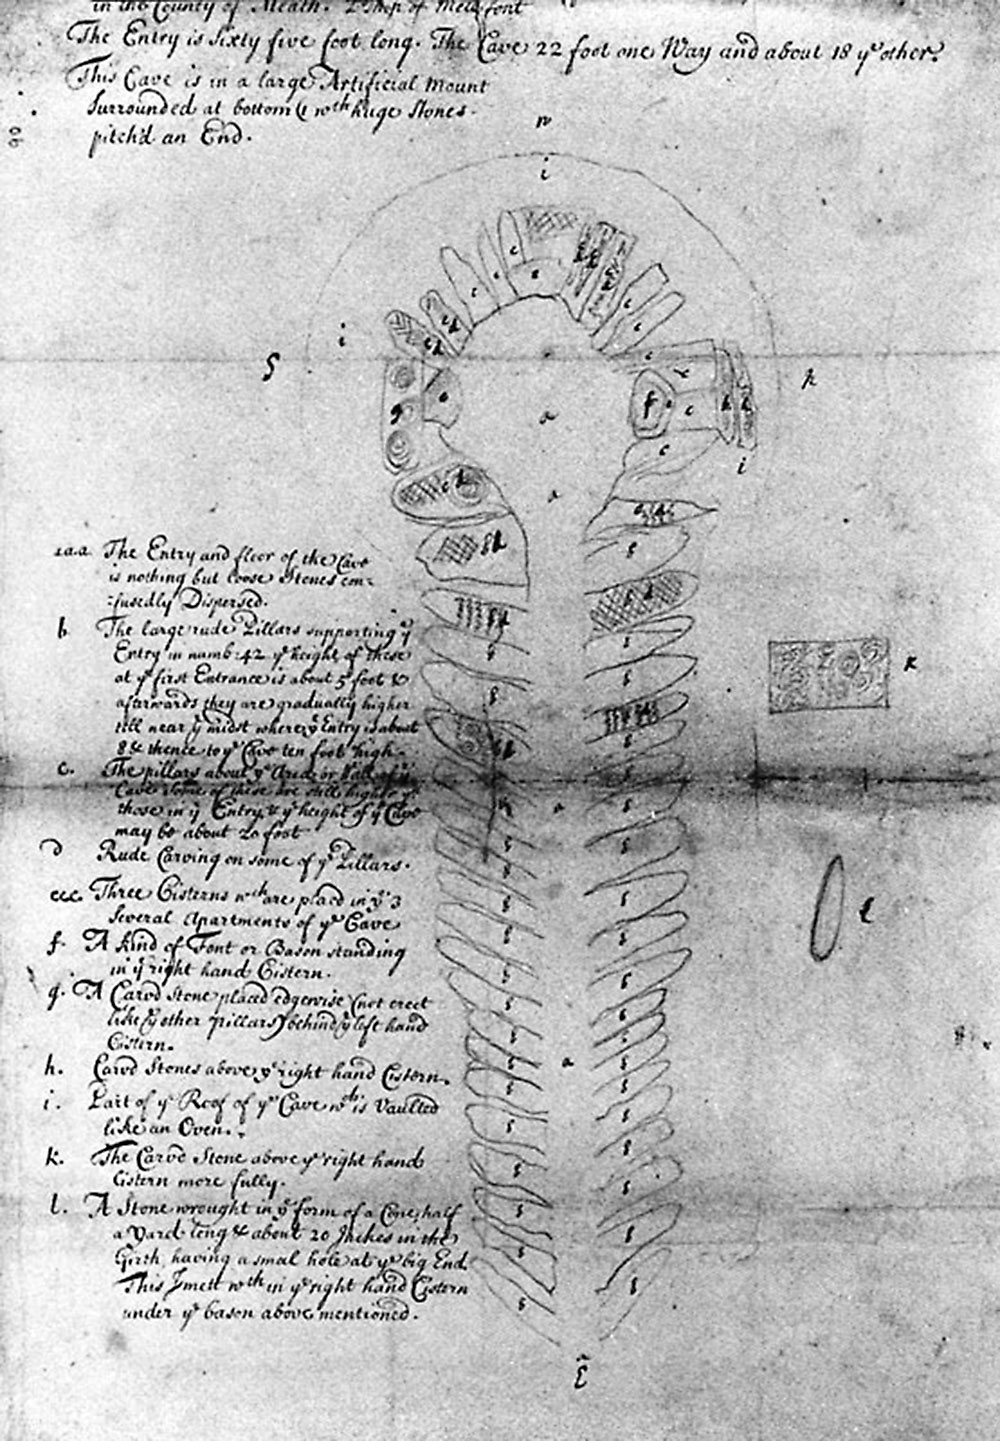 in the County of Meath.
The Entry is Sixty five foot long. The Cave 22 foot one Way and about 18 yᵉ other.
This Cave is in a large Artificial Mount
Surrounded at bottom wᵗʰ huge Stones
pitch'd an End.
w
i
i
S
h
i
a.a.a The Entry and floor of the Cave
is nothing but loose Stones con-
-fusedly Dispersed.
b The large rude Pillars supporting yᵉ
Entry in numb: 42 yᵉ height of these
at yᵉ first Entrance is about 5 foot &
afterwards they are gradually higher
till near yᵉ midst where yᵉ Entry is about
8 & thence to yᵉ Cave ten foot high.
c. The pillars about yᵉ Area or
Cave some of these are still higher yⁿ
those in yᵉ Entry, & yᵉ height of yᵉ Cave
may be about 20 foot
D Rude Carving on some of yᵉ Pillars.
eee. Three Cisterns wᶜʰ are placed in yᵉ 3
Several Apartments of yᵉ Cave
f. A kind of Font or Bason standing
in yᵉ right hand Cistern.
g. A Carvd Stone placed edgewise (not erect
like yᵉ other pillars) behind yᵉ left hand
Cistern.
h. Carvd Stones above yᵉ right hand Cistern.
i. Part of yᵉ Roof of yᵉ Cave wᶜʰ is Vaulted
like an Oven.
k. The Carvd Stone above yᵉ right hand
Cistern more fully.
l. A Stone wrought in yᵉ form of a Cone, half
a Yard long & about 20 Inches in the
Girth, having a small hole at yᵉ big End.
This I mett wᵗʰ in yᵉ right hand Cistern
under yᵉ bason above mentioned.
a
a
a
a
f
g
k
l
E